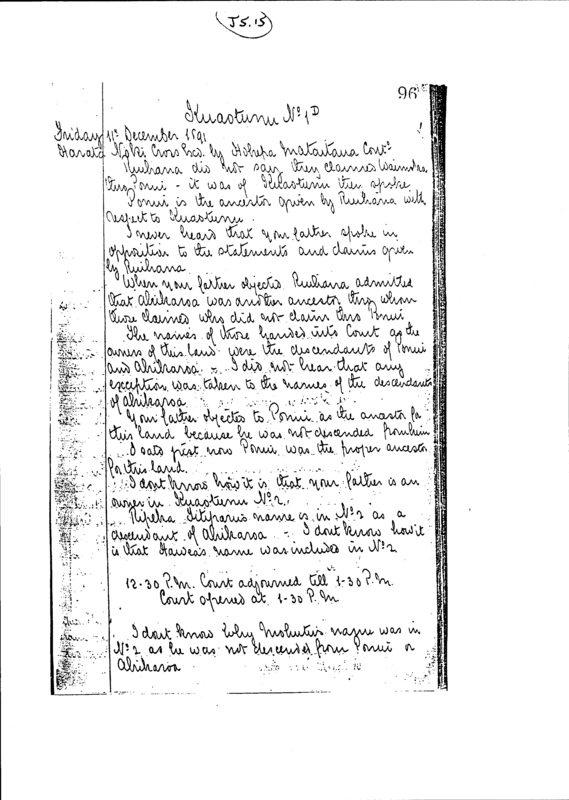 J5.15
96
Kuaotunu No 1D
Friday 11th December 1891
Harata Noki Cross Exd. by Hohepa Mataitaua Cont.
Ruihana did not say they claimed
thro Ponui - it was of Kuaotunu they spoke.
Ponui is the ancestor given by Ruihana with
respect to Kuaotunu.
I never heard that your father spoke in
opposition to the statements and claims given
by Ruihana
When your father objected Ruihana admitted
that Ahikaroa was another ancestor thro whom
those claimed who did not claim thro Ponui
The names of those handed into Court as the
owners of this land were the descendants of Ponui
and Ahikaroa - I did not hear that any
exception was taken to the names of the descendants
of Ahikaroa
Your father objected to Ponui as the ancestor for
this land because he was not descended from him
I said just now Ponui was the proper ancestor
for this land.
I dont know how it is that your father is an
owner in Kuaotunu No 2.
Ripeka name is in No 2 as a
descendant of Ahikaroa - I dont know how it
is that name was included in No 2
12-30 P.M. Court adjourned till 1-30 P.M.
Court opened at 1-30 P.M
I dont know why name was in
No 2 as he was not descended from Ponui or
Ahikaroa